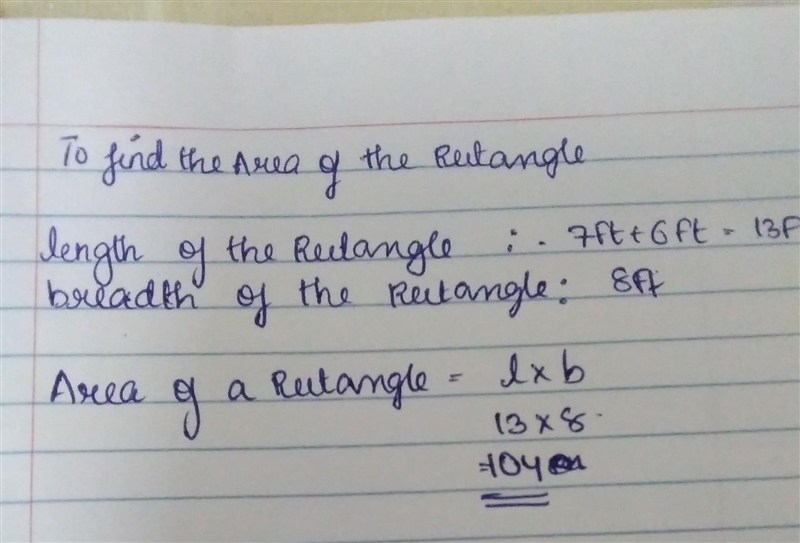 To find the Area of the Rectangle
length of the Rectangle : . 7ft + 6ft = 13F
breadth of the Rectangle : 8ft
Area of a Rectangle = l x b
13 x 8
=104